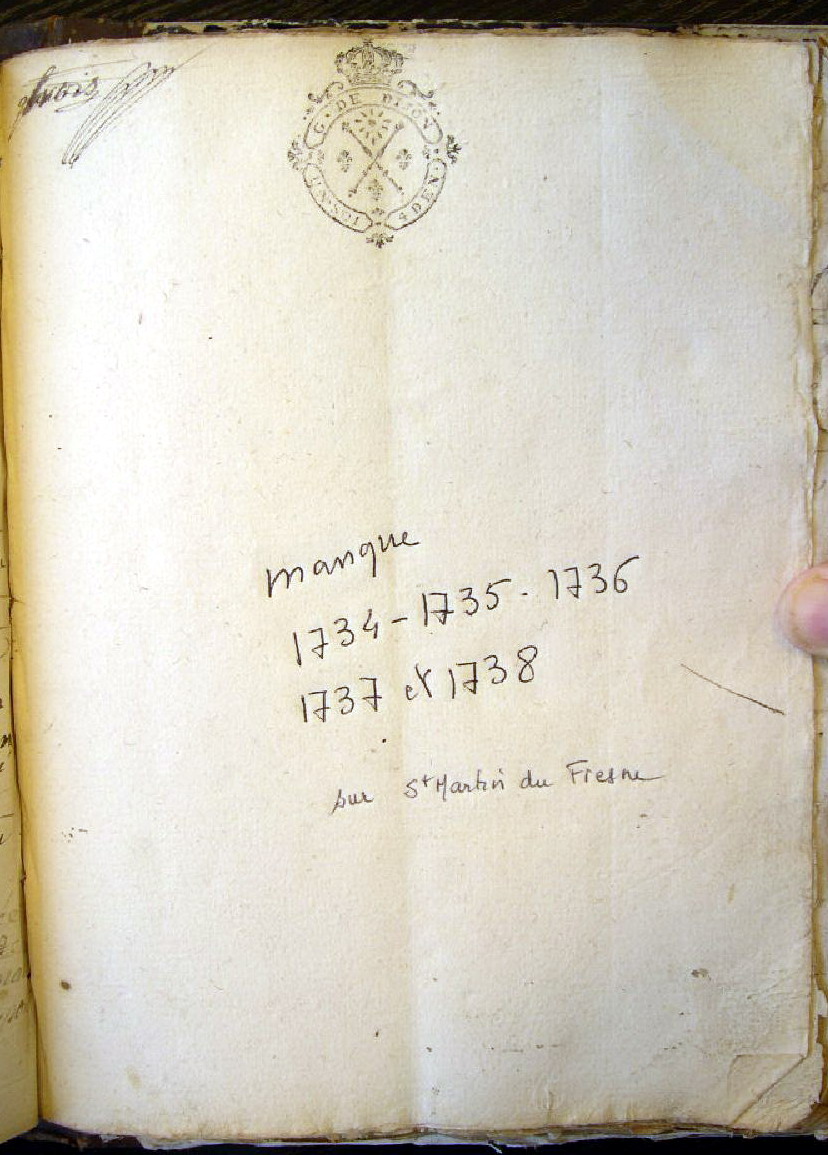 G. DE DIJON
4 DEN.
manque
1734 - 1735. 1736
1737 et 1738
sur St Martin du Fresne